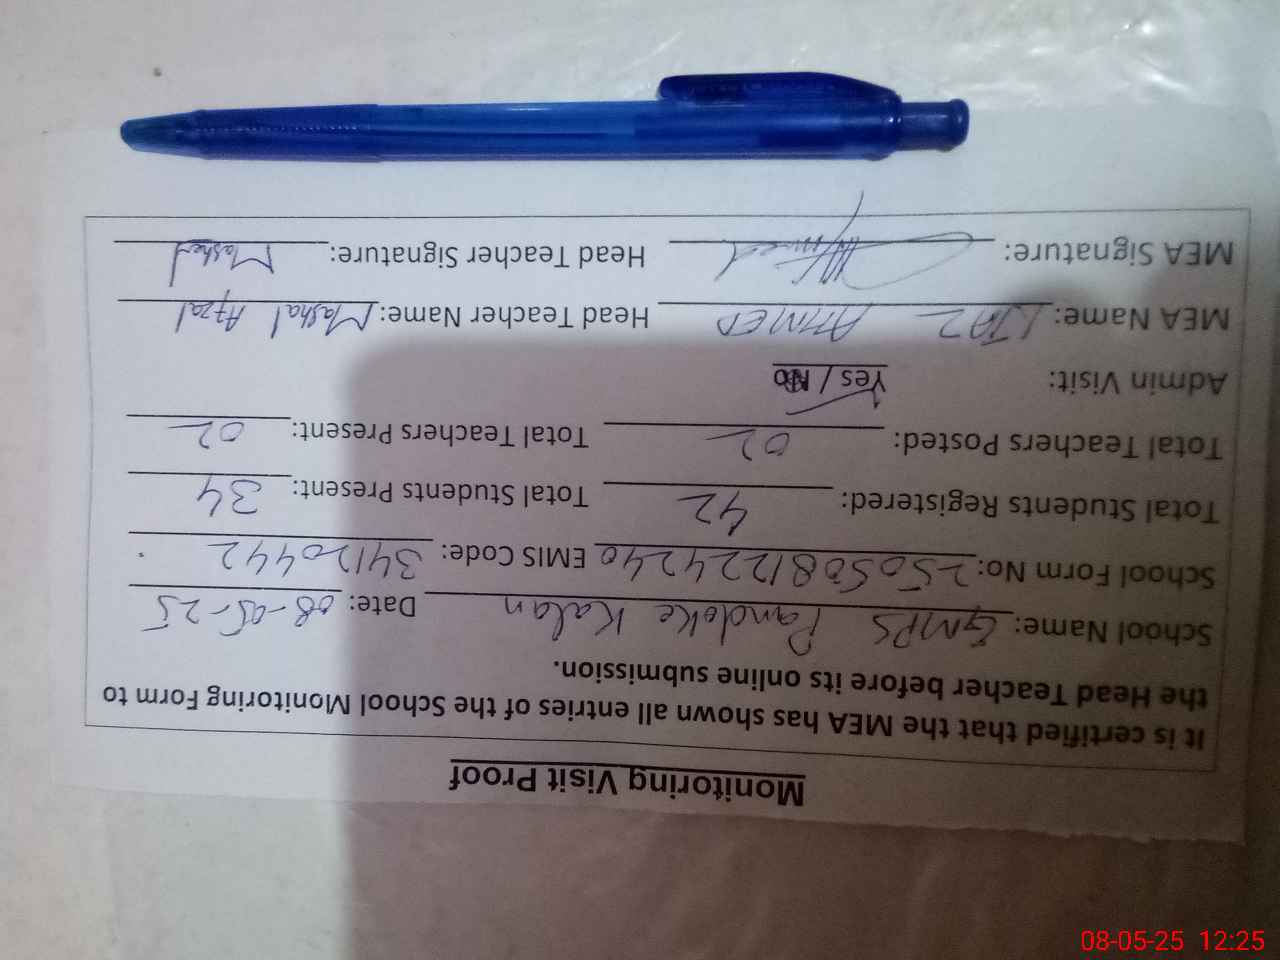 Monitoring Visit Proof
It is certified that the MEA has shown all entries of the School Monitoring Form to
the Head Teacher before its online submission.
School Name: GMPS Pandoke Kalan Date: 08-05-25
School Form No: 2505081224240 EMIS Code: 34120442
Total Students Registered: 42 Total Students Present: 34
Total Teachers Posted: 02 Total Teachers Present: 02
Admin Visit: Yes / No
MEA Name: IJAZ AHMED Head Teacher Name: Mashal Afzal
MEA Signature: Head Teacher Signature: Mashal
08-05-25 12:25